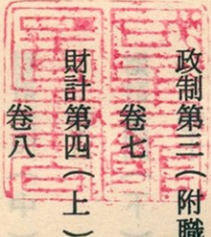 政制第三(附職
卷七
財計第四(上)
卷八